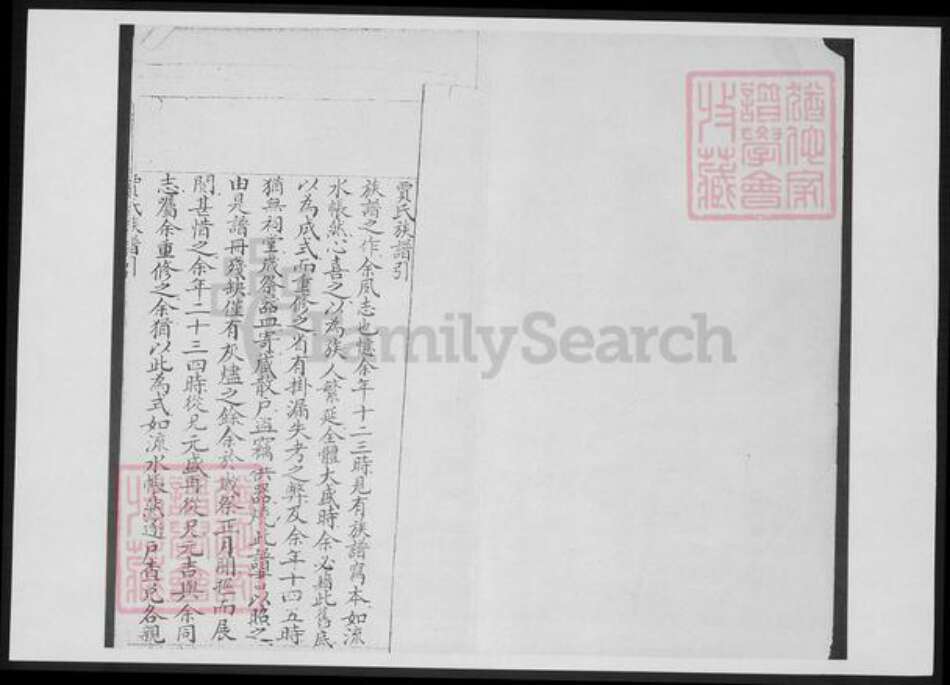 賈氏族譜引
族譜之作余夙志也憶余年十二三時見有族譜寫本如流
水帳然心喜之以為族人繁延全體大盛時余必藉此舊底
以為底式而重修之省有掛漏失考之弊及余年十四五時
猶無祠堂歲祭器皿寄藏散戶盜竊供器 此譜 以照之
由是譜冊殘缺僅有灰燼之餘余於歲祭正月開 而展
閱甚惜之余年二十三四時從兄元盛再從兄元吉與余同
志屬余重修之余猶以此為式如流水帳然逐戶查 各親
賈氏族譜引
猶他家譜學會收藏
FamilySearch